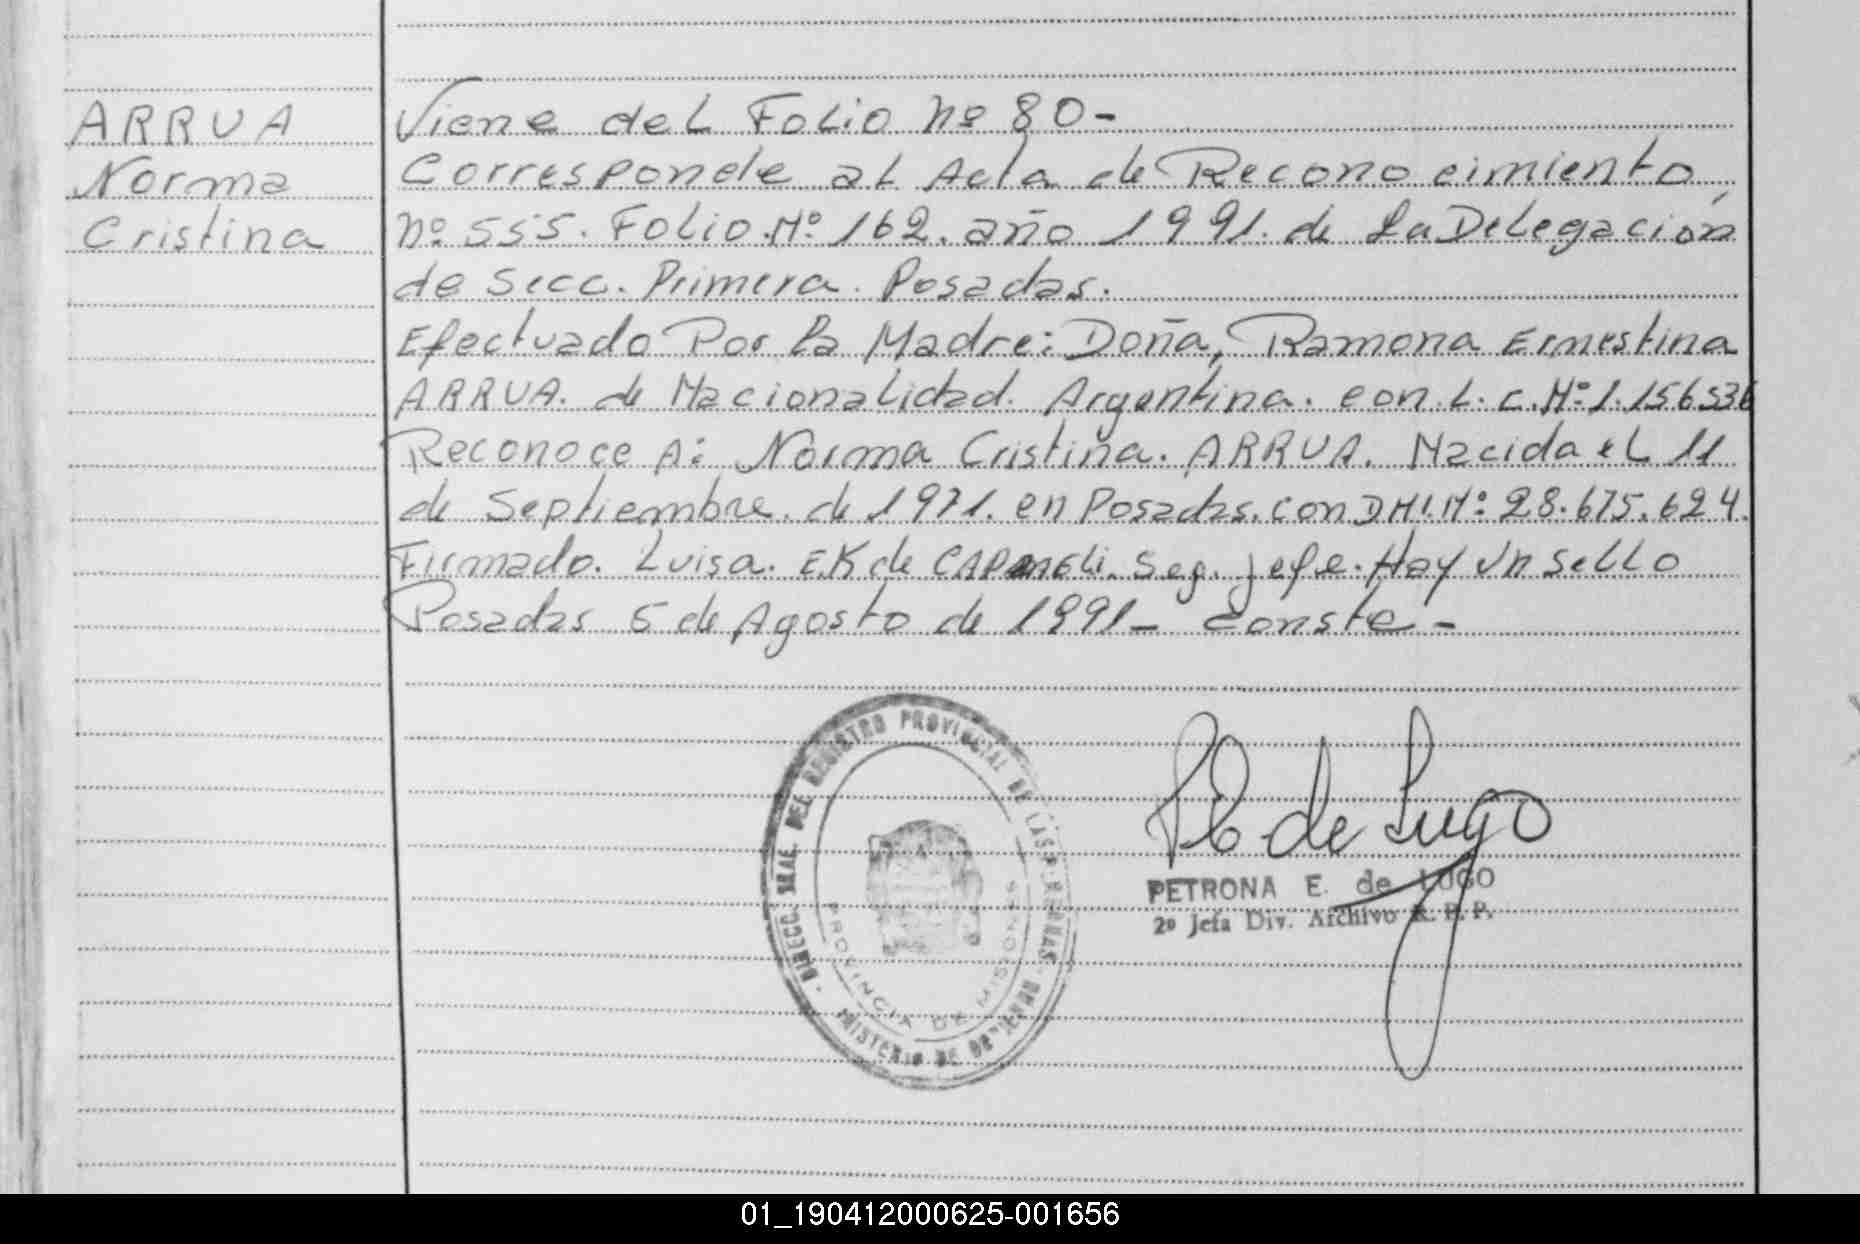 ARRUA
Norma
Cristina
Viene del Folio Nº 80-
Corresponde al Acta de Reconocimiento,
Nº 555. Folio.Nº 162. año 1991. de La Delegación
de Secc. Primera. Posadas.
Efectuado Por La Madre: Doña, Ramona Ernestina
ARRUA. de Nacionalidad. Argentina. con. L. C. Nº 1.156536
Reconoce A: Norma Cristina. ARRUA. Nacida el 11
de Septiembre. de 1971. en Posadas. con DNI. Nº 28.675.624.
Firmado. Luisa. E.K de Seg. Jefe. Hay Un Sello
Posadas 5 de Agosto de 1991- Conste-
DIRECC. GRAL. DEL REGISTRO PROVINCIAL DE LAS PERSONAS
PROVINCIA DE MISIONES
MINISTERIO DE GOBIERNO
PE de Lugo
PETRONA E. de LUGO
2º Jefa Div. Archivo R. P. P.
01_190412000625-001656